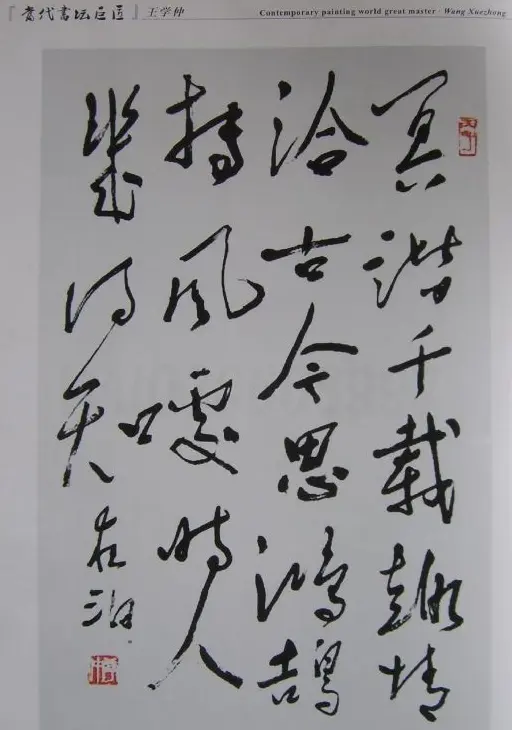 『當代书坛巨匠』王学仲
Contemporary painting world great master · Wang Xuezhong
冥諧千載趣情
洽古今思鴻鵠
摶風處時人
幾得知
夜泊